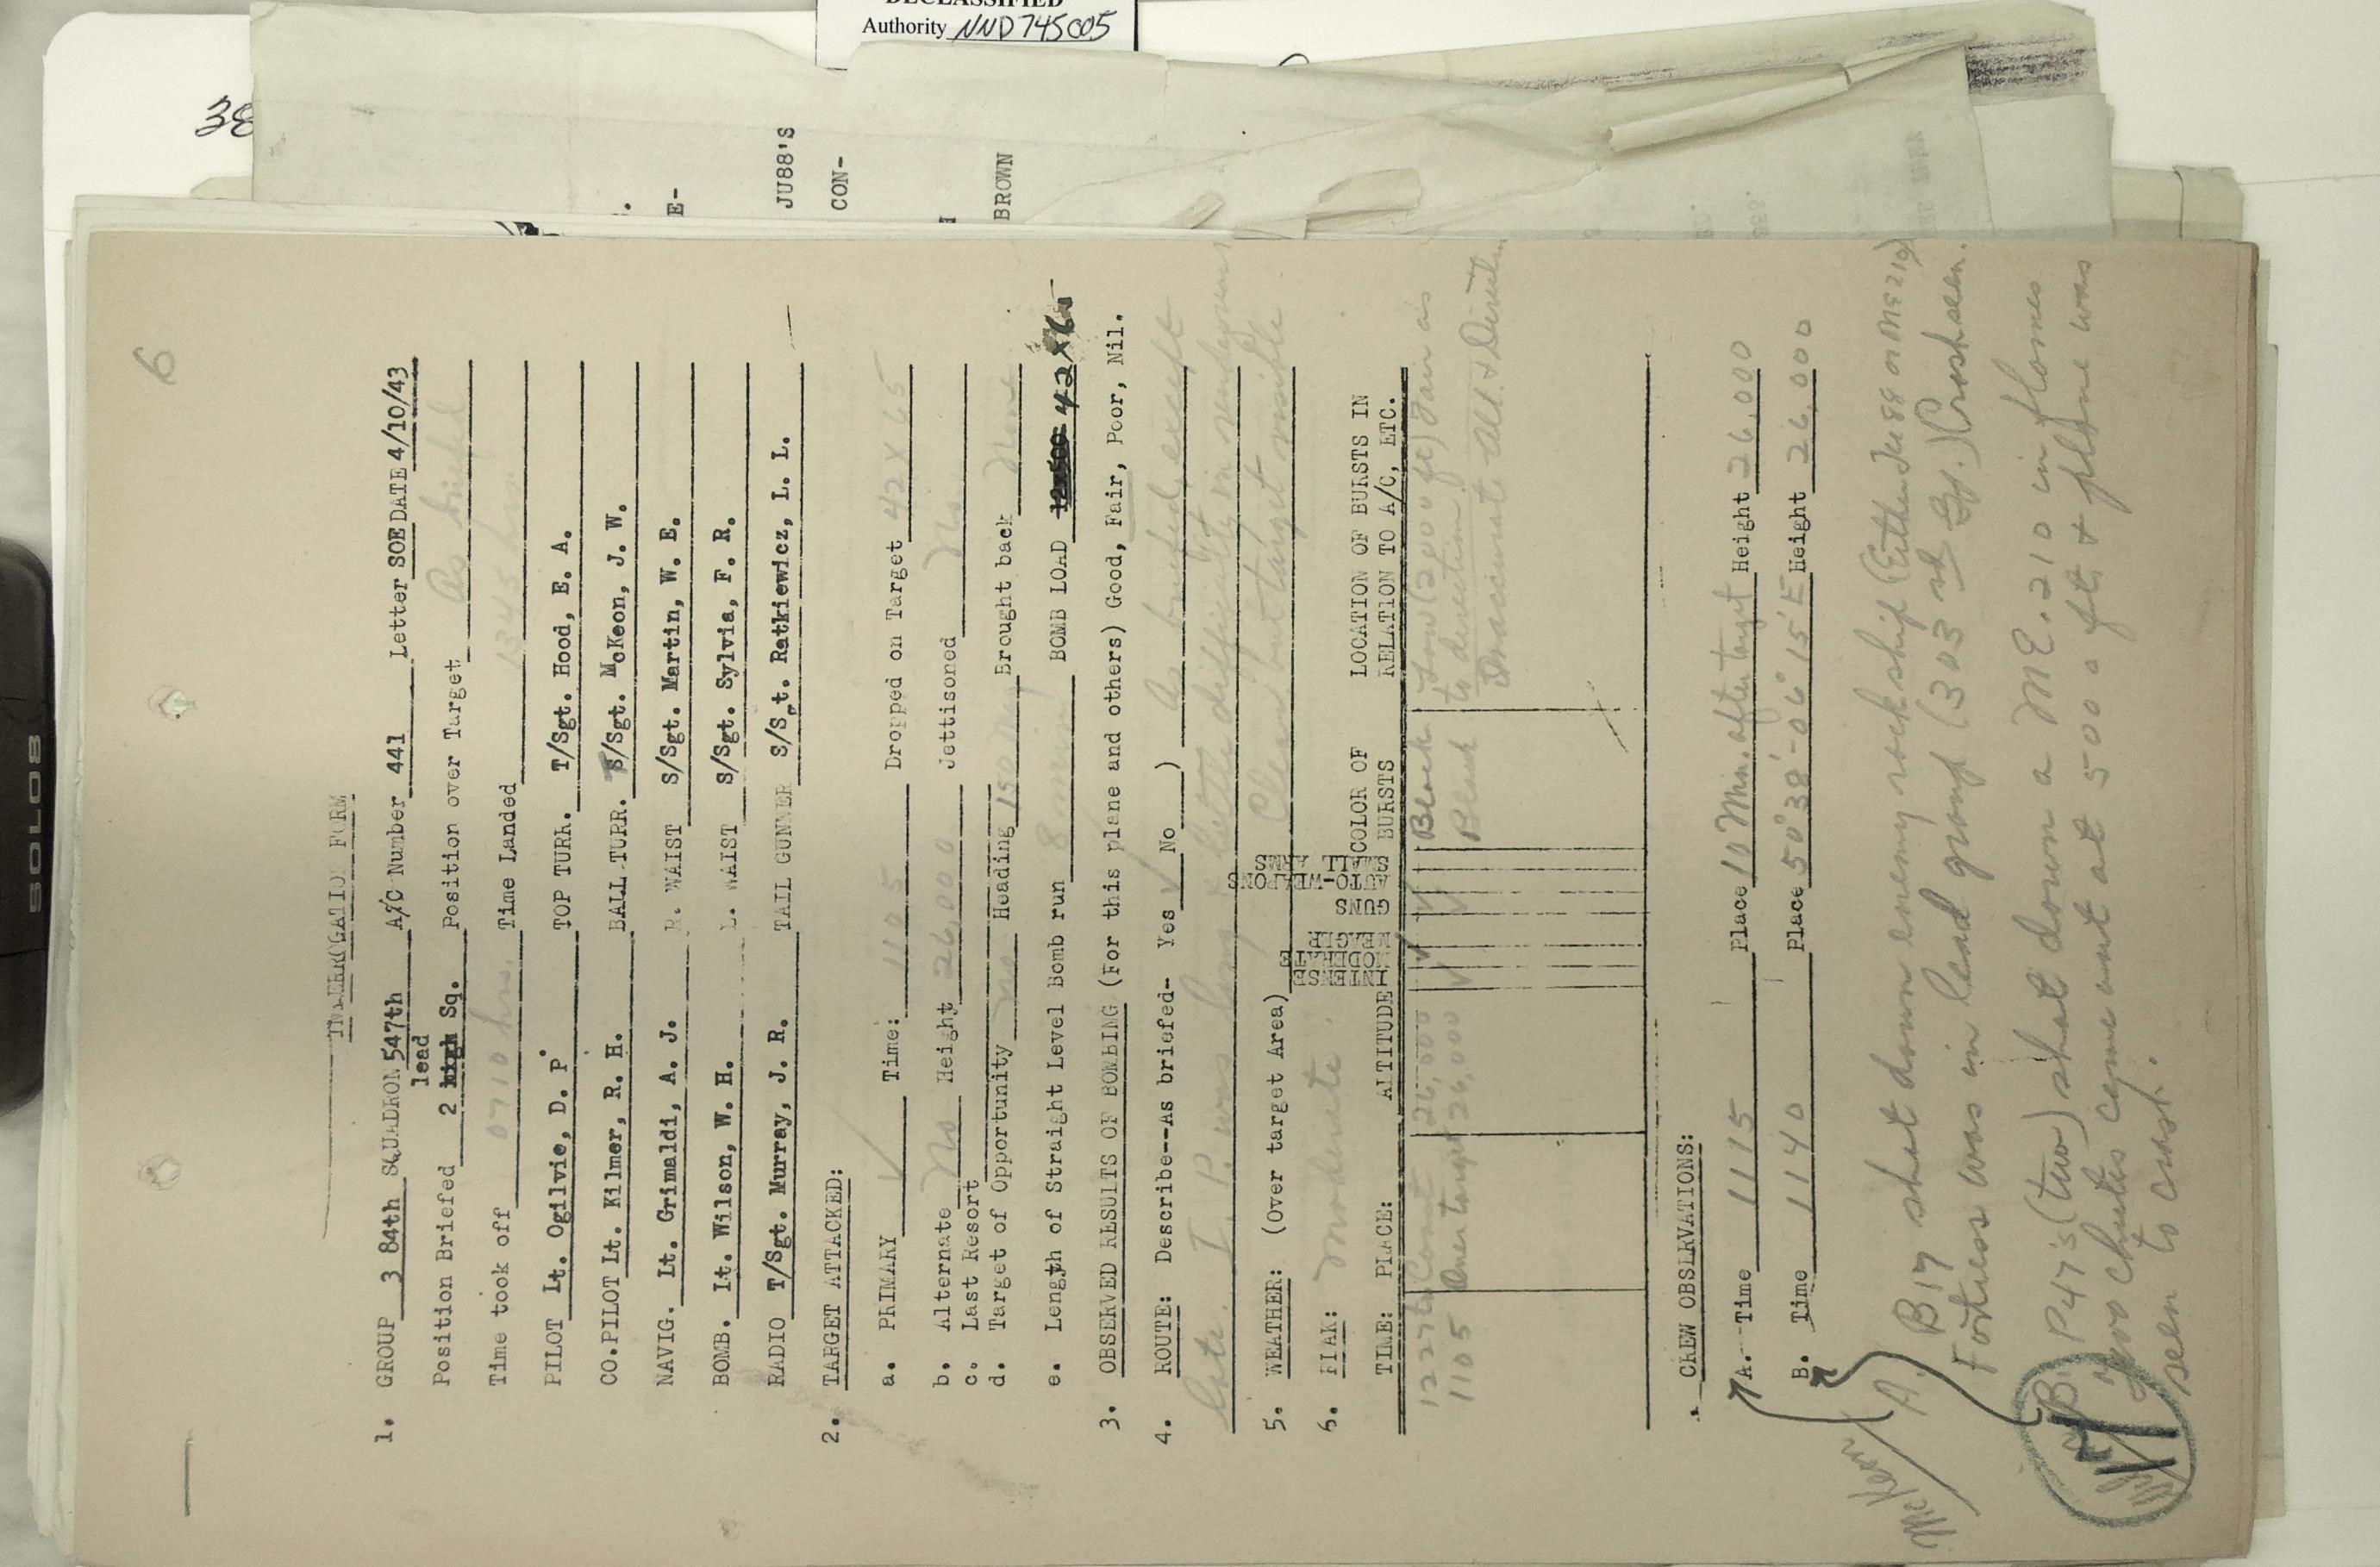 DECLASSIFIED
Authority NND745005
38
E-
JU88'S
CON-
BROWN
SOLOS
6
INTERROGATION FORM
1. GROUP 384th SQUADRON 547th A/C Number 441 Letter SOE DATE 4/10/43
lead
Position Briefed 2 high Sq. Position over Target As briefed
Time took off 0710 hrs. Time Landed 1345 hrs
PILOT Lt. Ogilvie, D. P. TOP TURR. T/Sgt. Hood, E. A.
CO.PILOT Lt. Kilmer, R. H. BALL TURR. S/Sgt. McKeon, J. W.
NAVIG. Lt. Grimaldi, A. J. R. WAIST S/Sgt. Martin, W. E.
BOMB. Lt. Wilson, W. H. L. WAIST S/Sgt. Sylvia, F. R.
RADIO T/Sgt. Murray, J. R. TAIL GUNNER S/Sgt. Ratkiewicz, L. L.
2. TARGET ATTACKED:
a. PRIMARY √ Time: 1105 Dropped on Target 42 X 65
b. Alternate No Height 26,000 Jettisoned No
c. Last Resort
d. Target of Opportunity No Heading 150 Mag Brought back None
e. Length of Straight Level Bomb run 8 min BOMB LOAD 42 X 65
3. OBSERVED RESULTS OF BOMBING (For this plane and others) Good, Fair, Poor, Nil.
4. ROUTE: Describe--As briefed- Yes √ No ) As briefed, except
late. I. P. was long & little difficulty in rendezvous
5. WEATHER: (Over target Area) Clear but target visible
6. FLAK: Moderate
TIME: PLACE: ALTITUDE INTENSE MODERATE MEAGER GUNS AUTO-WEAPONS SMALL ARMS COLOR OF BURSTS LOCATION OF BURSTS IN RELATION TO A/C, ETC.
1227 26,000 √ √ Black Low (2000 ft) Fair as to direction
1105 Over target 26,000 √ √ Black Inaccurate Alt. & Direction
CREW OBSERVATIONS:
A. Time 1115 Place 10 Min. after target Height 26,000
B. Time 1140 Place 50°38'-06°15'E Height 26,000
McKeon
A. B17 shot down enemy rock ship (Either Ju 88 or ME 210)
Fortress was in lead group (303rd Gp.) Crash seen.
B. P47's (two) shot down a ME. 210 in flames
two chutes came out at 5000 ft & plane was
seen to crash.